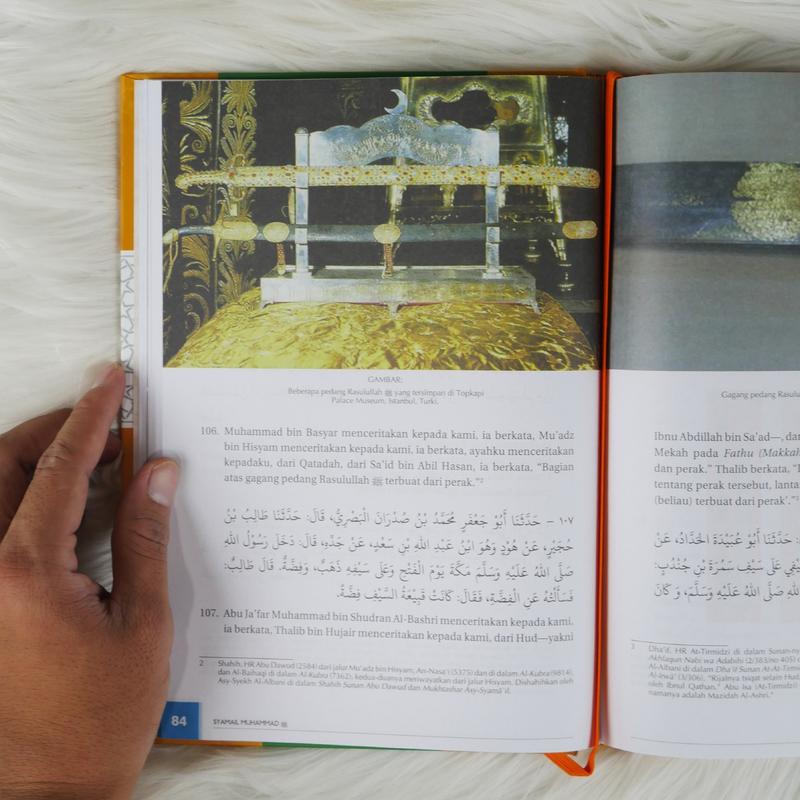 GAMBAR:
Beberapa pedang Rasulullah ﷺ yang tersimpan di Topkapi
Palace Museum, Istanbul, Turki.
106. Muhammad bin Basyar menceritakan kepada kami, ia berkata, Mu'adz
bin Hisyam menceritakan kepada kami, ia berkata, ayahku menceritakan
kepadaku, dari Qatadah, dari Sa'id bin Abil Hasan, ia berkata, "Bagian
atas gagang pedang Rasulullah ﷺ terbuat dari perak."²
١٠٧ - حَدَّثَنَا أَبُوْ جَعْفَرٍ مُحَمَّدُ بْنُ صُدْرَانَ الْبَصْرِيُّ، قَالَ: حَدَّثَنَا طَالِبُ بْنُ
حُجَيْرٍ، عَنْ هُوْدٍ وَهُوَ ابْنُ عَبْدِ اللهِ بْنِ سَعْدٍ، عَنْ جَدِّهِ، قَالَ: دَخَلَ رَسُوْلُ اللهِ
صَلَّى اللهُ عَلَيْهِ وَسَلَّمَ مَكَّةَ يَوْمَ الْفَتْحِ وَعَلَى سَيْفِهِ ذَهَبٌ، وَفِضَّةٌ. قَالَ طَالِبٌ:
فَسَأَلْتُهُ عَنِ الْفِضَّةِ، فَقَالَ: كَانَتْ قَبِيْعَةُ السَّيْفِ فِضَّةً.
107. Abu Ja'far Muhammad bin Shudran Al-Bashri menceritakan kepada kami,
ia berkata, Thalib bin Hujair menceritakan kepada kami, dari Hud—yakni
2 Shahih, HR Abu Dawud (2584) dari jalur Mu'adz bin Hisyam, An-Nasa'i (5375) dan di dalam Al-Kubra (9814),
dan Al-Baihaqi di dalam Al-Kubra (7362), kedua-duanya meriwayatkan dari jalur Hisyam. Dishahihkan oleh
Asy-Syeikh Al-Albani di dalam Shahih Sunan Abu Dawud dan Mukhtashar Asy-Syamâ'il.
84 SYAMAIL MUHAMMAD ﷺ
Gagang pedang
Ibnu Abdillah bin Sa'ad—,
Mekah pada Fathu (Makkah
dan perak." Thalib berkata,
tentang perak tersebut,
(beliau) terbuat dari perak'."³
حَدَّثَنَا أَبُوْ عُبَيْدَةَ الْحَدَّادُ، عَنْ
عَلَى سَيْفِ سَمُرَةَ بْنِ جُنْدُبٍ:
اللهِ صَلَّى اللهُ عَلَيْهِ وَسَلَّمَ، وَكَانَ
3 Dha'if, HR At-Tirmidzi di dalam
Akhlaqun Nabi wa Adabihi (2/383/no 405)
Al-Albani di dalam Dha'if Sunan
Al-Irwâ' (3/306), "Rijalnya tsiqat selain
oleh Ibnul Qathan," Abu Isa (At-Tirmidzi)
namanya adalah Mazidah Al-Ashri."